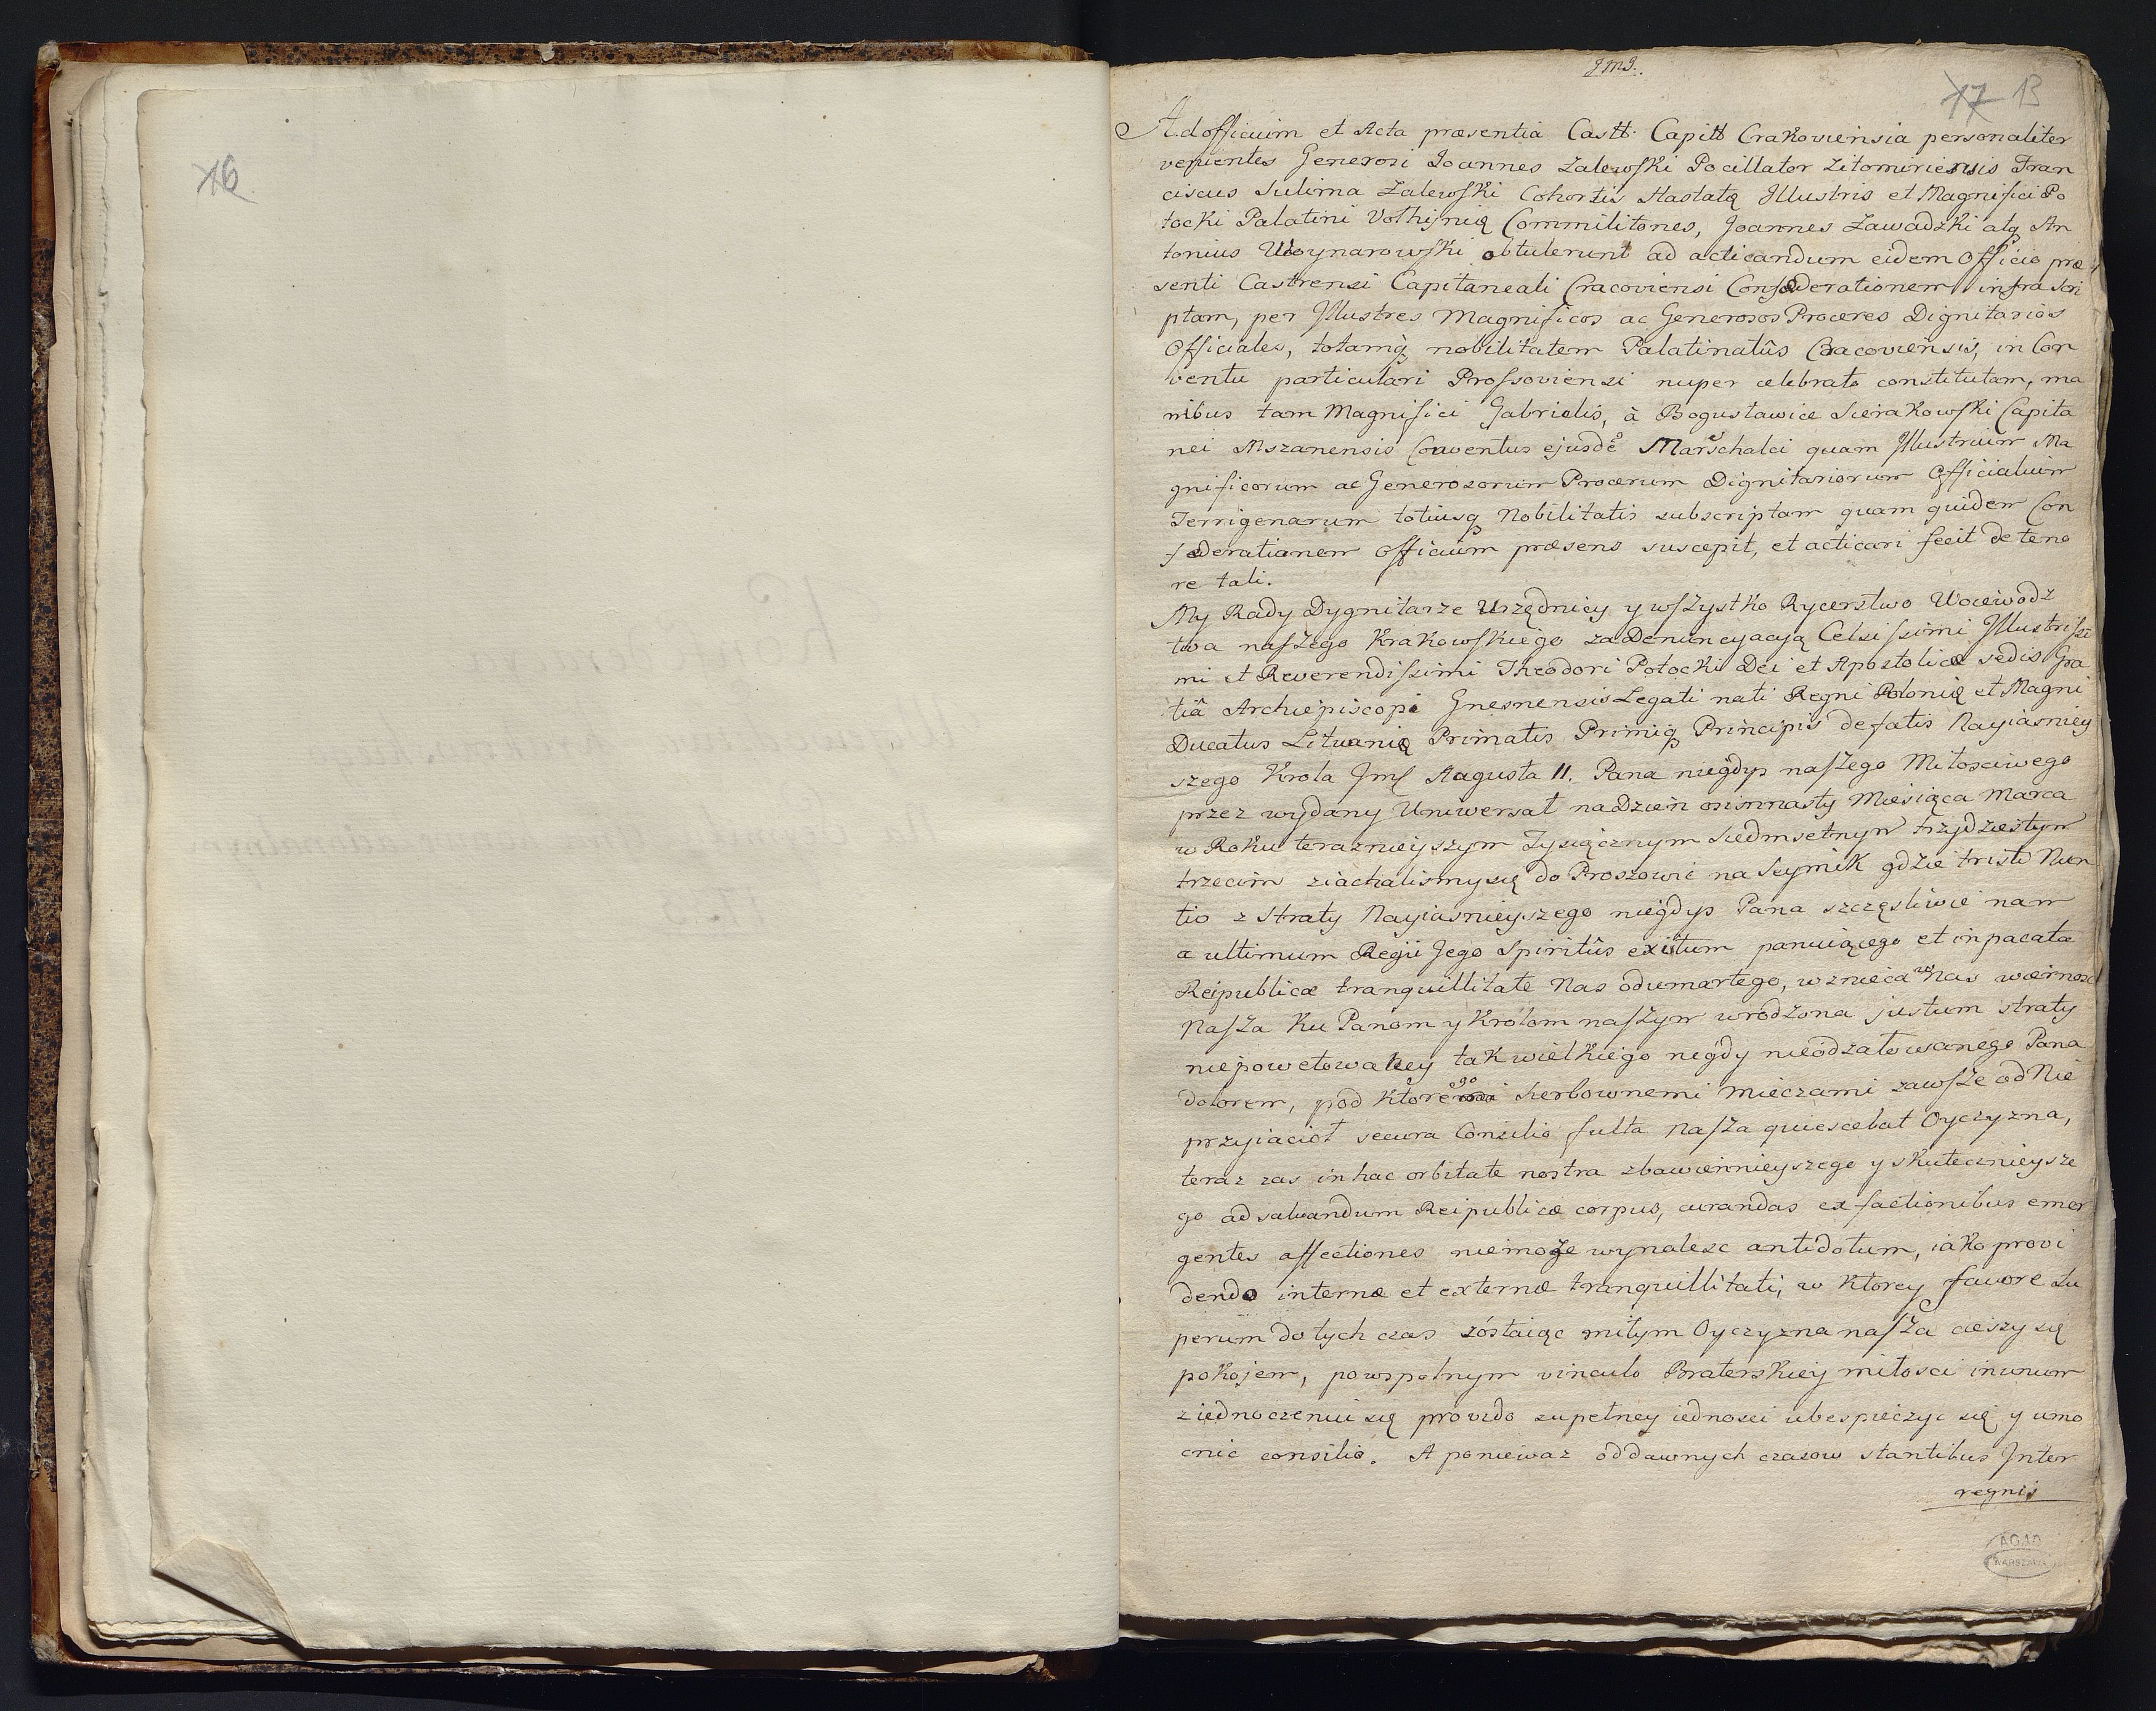 16
JMJ.
17 13
Ad officium et Acta præsentia Castt. Capitt Crakoviensia personaliter
venientes Generosi Joannes Zalewski Pocillator Zitomiriensis Fran
ciscus Sulima Zalewski Cohortis Hastatę Illustris et Magnifici Po
tocki Palatini Volhijnię Commilitones, Joannes Zawadzki atq An
tonius Woynarowski obtulerunt ad acticandum eidem Officio præ
senti Castrensi Capitaneali Cracoviensi Confæderationem infra scri
ptam, per Illustres Magnificos ac Generosos Proceres Dignitarios
Officiales, totamq nobilitatem Palatinatûs Cracoviensis, in Con
ventu particulari Prossoviensi nuper celebrato constitutam, ma
nibus tam Magnifici Gabrielis, à Bogusławice Sierakowski Capita
nei Mszanensis Conventus ejusdē Marschalci quam Illustrium Ma
gnificorum ac Generosorum Procerum Dignitariorum Officialium
Terrigenarum totiusq Nobilitatis subscriptam quam quidem Con
fæderationem Officium præsens suscepit, et acticari fecit de teno
re tali.
My Rady Dygnitarze Urzędnicy y wszystko Rycerstwo Wojewodz
twa naszego Krakowskiego za Denuncyacyą Celsissimi Illustrissi
mi et Reverendissimi Theodori Potocki Dei et Apostolicæ sedis Gra
tiâ Archiepiscopi Gnesnensis Legati nati Regni Polonię et Magni
Ducatus Lituanię Primatis Primiq Principis de fatis Nayiasniey
szego Krola Jmſ Augusta II. Pana niegdys naszego Miłosciwego
przez wydany Uniwersał na Dzien osimnasty Miesiąca Marca
w Roku teraznieyszym Tysiącznym Siedmsetnym trzydziestym
trzecim ziachalismy się do Proszowic na Seymik gdzie tristi Nun
tio z straty Nayiasnieyszego niegdys Pana szczęsliwie nam
a ultimum Regii Jego Spiritûs exitum panuiącego et in pacata
Reipublicæ tranquillitate Nas odumarłego, wznieca w Nas wiernosc
Nasza ku Panom y Krolom naszym wrodzona justum straty
niepowetowaney tak wielkiego nigdy nieodzałowanego Pana
dolorem, pod ktorego herbownemi mieczami zawsze od Nie
przyiacioł secura Consilio fulta Nasza quiescebat Oyczyzna,
teraz zas in hac orbitate nostra zbawiennieyszego y skutecznieysze
go ad salvandum Reipublicæ corpus, curandas ex factionibus emer
gentes affectiones niemoże wynalesc antidotum, iako provi
dendo internæ et externæ tranquillitati, w ktorey favore Su
perum do tych czas zóstaiąc miłym Oyczyzna nasza cieszy się
pokojem, powspolnym vinculo Braterskiey miłosci in unum
ziednoczeniu się provido zupełney iednosci ubespieczyc się y umo
cnic consilio. A poniewaz od dawnych czasow stantibus Inter
regnis
AGAD
WARSZAWA